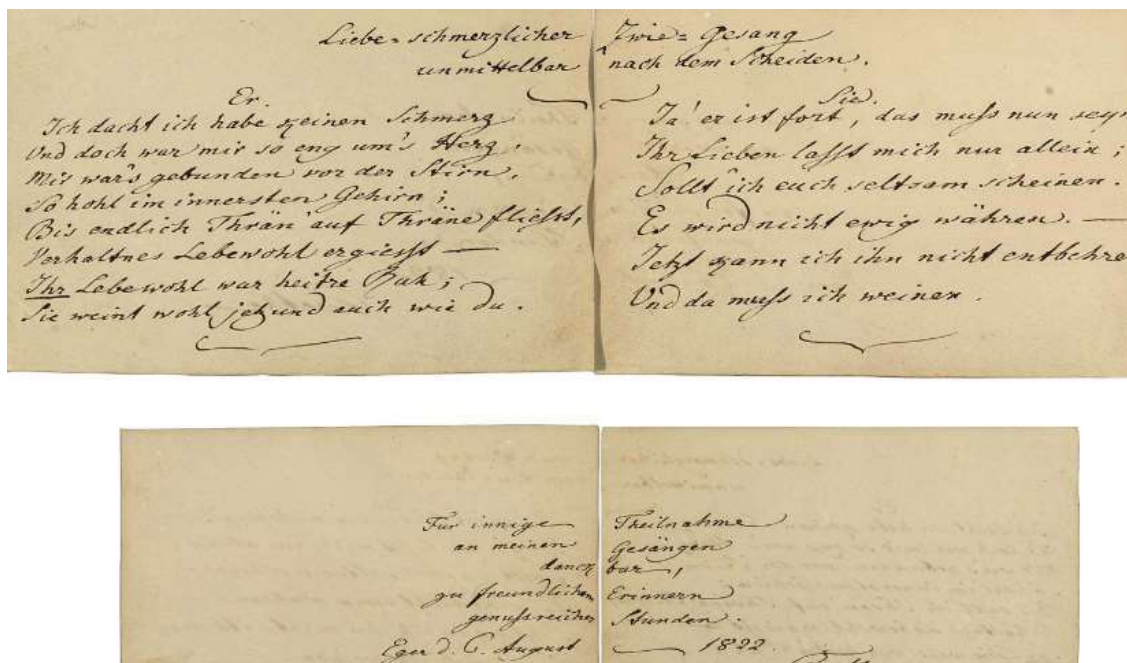 Liebe=schmerzlicher Zwie=Gesang
unmittelbar nach dem Scheiden.
Er.
Ich dacht ich habe keinen Schmerz
Und doch war mir so eng um's Herz
Mir war's gebunden vor der Stirn,
So hohl im innersten Gehirn;
Bis endlich Thrän' auf Thräne fliesst,
Verhaltnes Lebewohl ergiesst —
Ihr Lebewohl war heitre Ruh;
Sie weint wohl jetzund auch wie du.
Sie.
Ja! er ist fort, das muss nun seyn
Ihr Lieben lasst mich nur allein;
Sollt' ich euch seltsam scheinen.
Es wird nicht ewig währen. —
Jetzt kann ich ihn nicht entbehre
Und da muss ich weinen.
Für innige Theilnahme
an meinen Gesängen
danckbar,
zu freundlichem Erinnern
genussreicher Stunden.
Eger d. 6. August 1822.